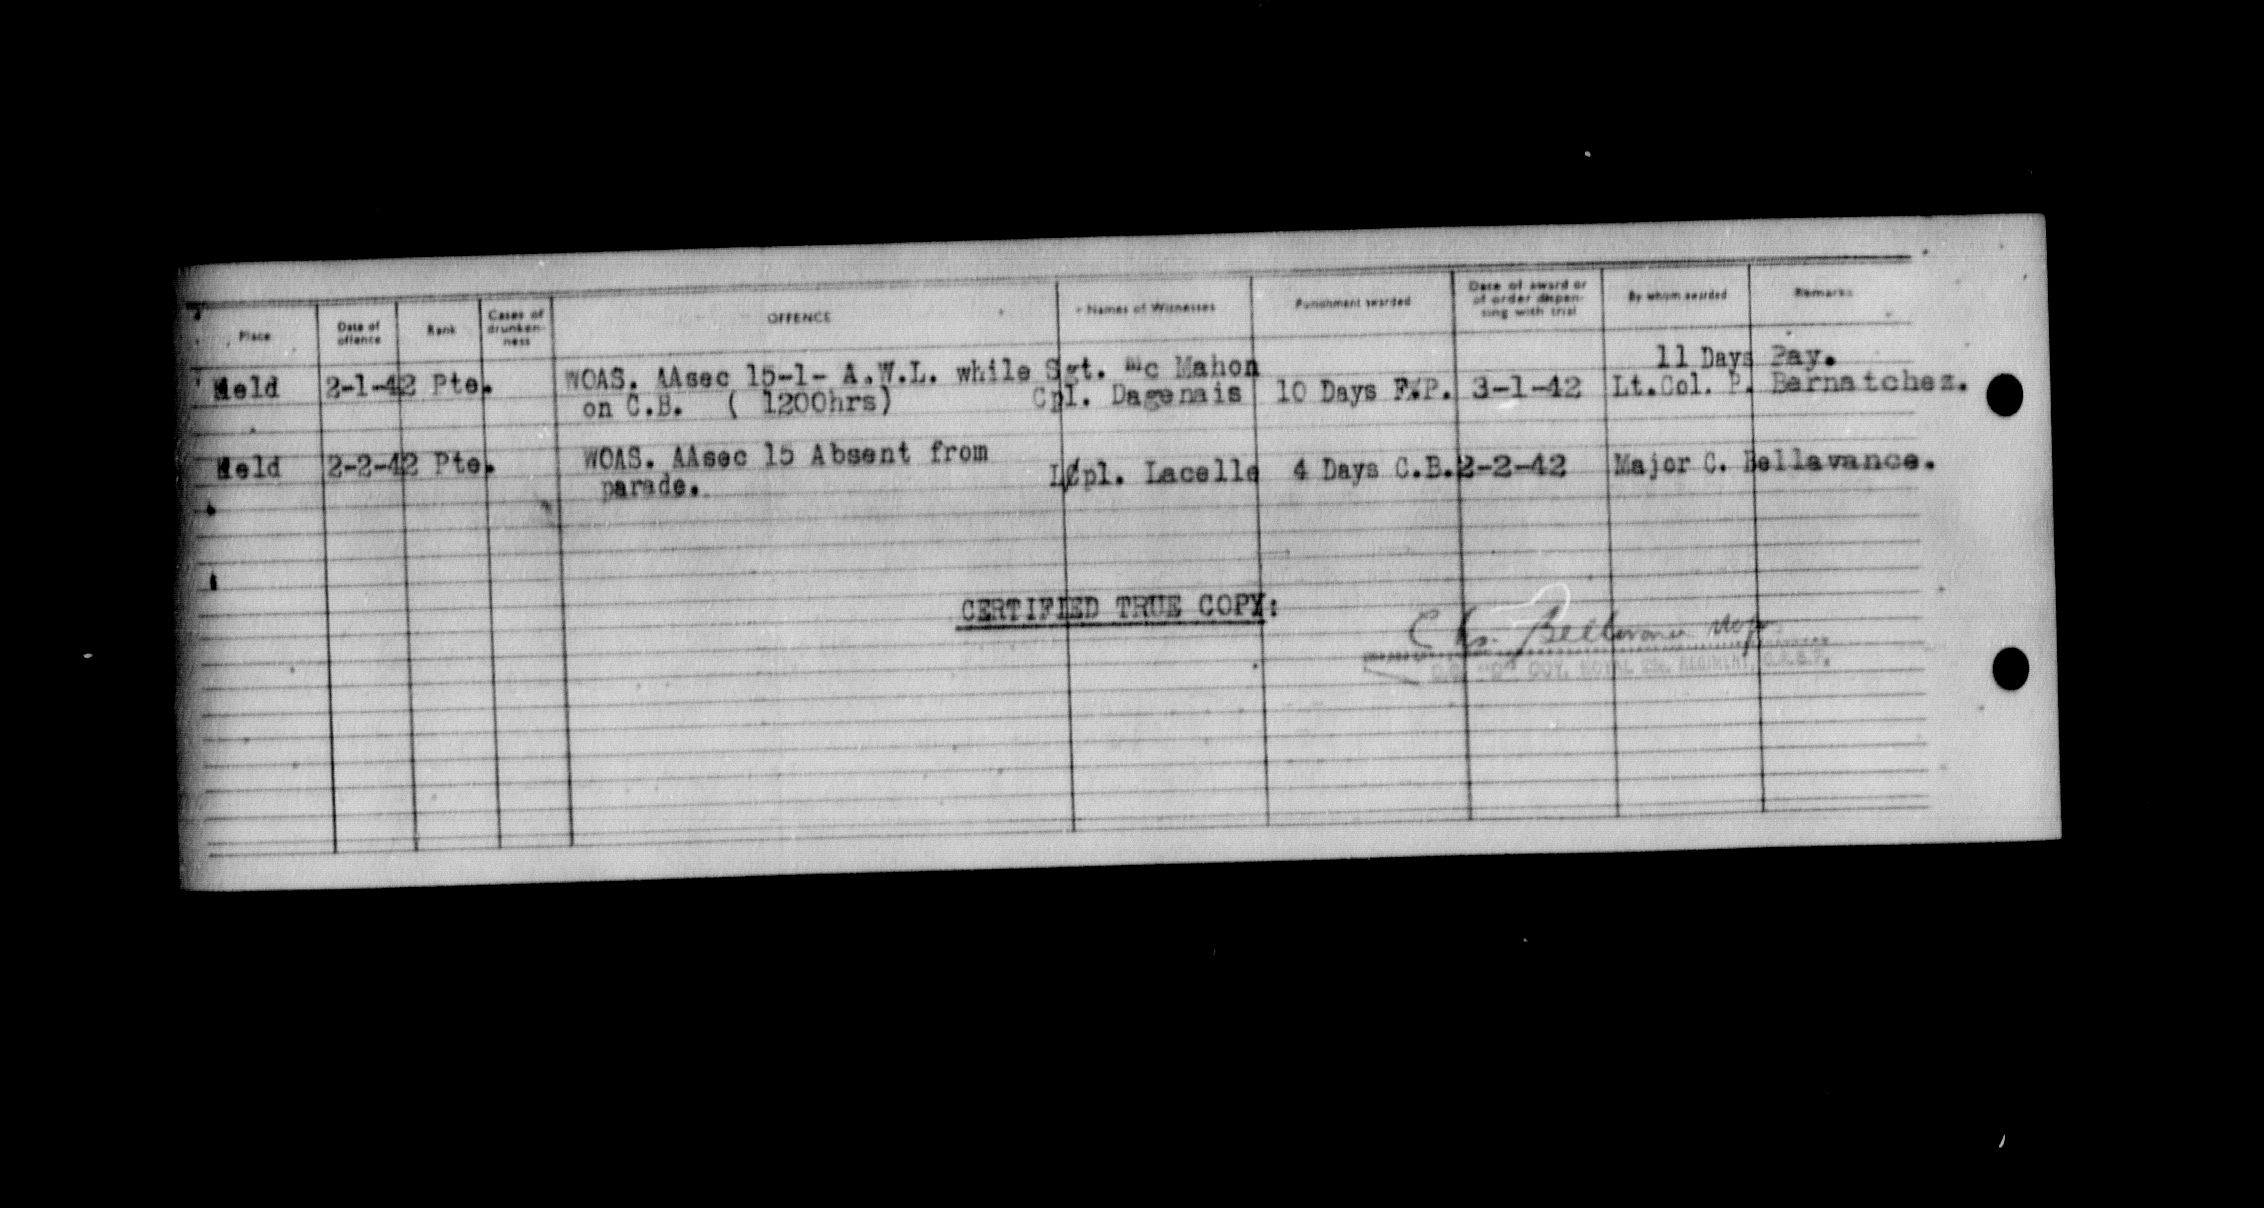 Place Date of offence Rank Cases of drunken-ness OFFENCE Names of Witnesses Punishment awarded Date of award or of order dispen-sing with trial By whom awarded Remarks
11 Days Pay.
Field 2-1-42 Pte. WOAS. AAsec 15-1- A.W.L. while Sgt. Mc Mahon
on C.B. ( 1200hrs) Cpl. Dagenais 10 Days F.P. 3-1-42 Lt.Col. P. Bernatchez.
Field 2-2-42 Pte. WOAS. AAsec 15 Absent from
parade. L/Cpl. Lacelle 4 Days C.B. 2-2-42 Major C. Bellavance.
CERTIFIED TRUE COPY:
Bellavance Major
"D" COY, ROYAL 22e REGIMENT, C.A.S.F.